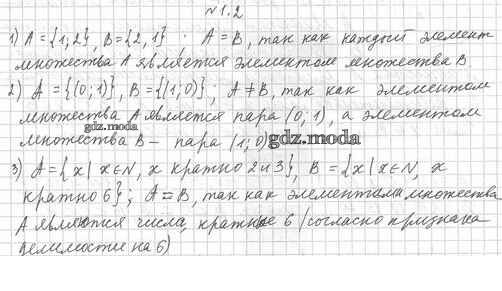 №1.2
1) A = {1; 2}, B = {2, 1} ; A = B, так как каждый элемент
множества A является элементом множества B
2) A = {(0; 1)}, B = {(1; 0)} ; A ≠ B, так как элементом
множества A является пара (0; 1), а элементом
gdz.moda
множества B – пара (1; 0)
gdz.moda
3) A = {x | x ∈ N, x кратно 2 и 3}, B = {x | x ∈ N, x
кратно 6} ; A = B, так как элементами множества
A являются числа, кратные 6 (согласно признака
делимости на 6)